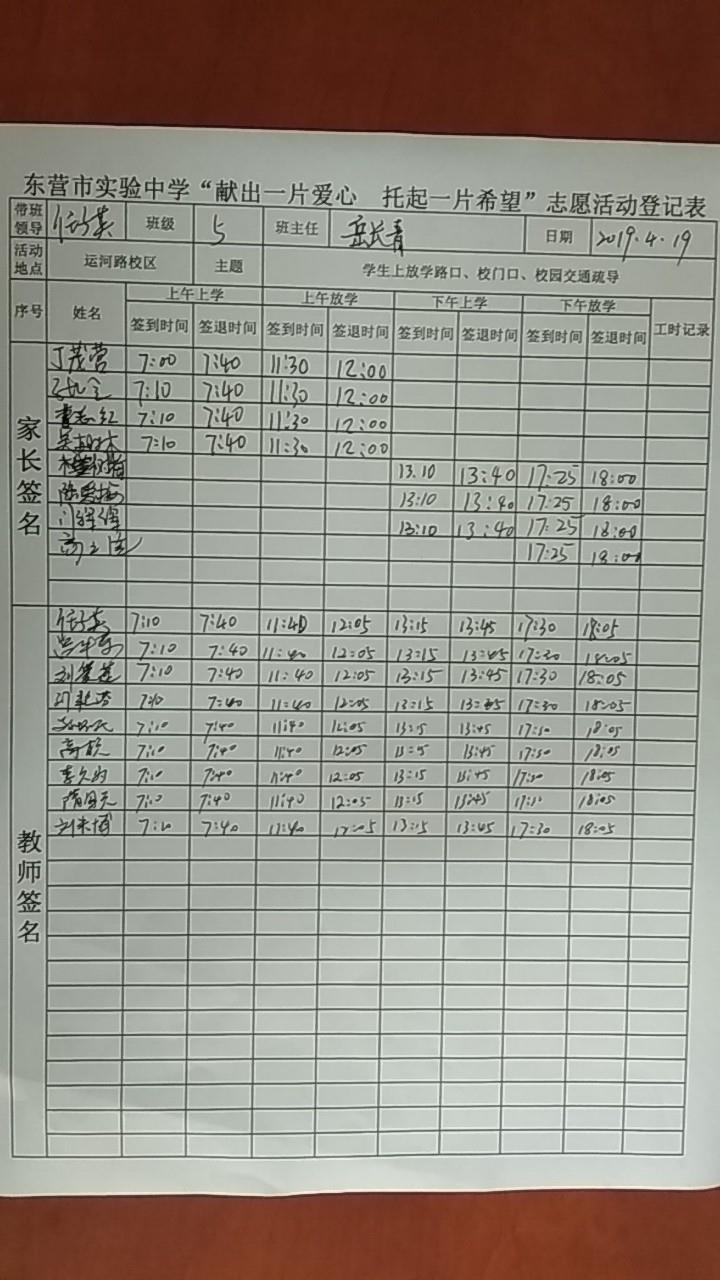 东营市实验中学“献出一片爱心 托起一片希望”志愿活动登记表
带班领导 班级 5 班主任 岳长青 日期 2019.4.19
活动地点 运河路校区 主题 学生上放学路口、校门口、校园交通疏导
序号 姓名 上午上学 上午放学 下午上学 下午放学 工时记录
签到时间 签退时间 签到时间 签退时间 签到时间 签退时间 签到时间 签退时间
家长签名
丁茂营 7:00 7:40 11:30 12:00
7:10 7:40 11:30 12:00
7:10 7:40 11:30 12:00
7:10 7:40 11:30 12:00
13.10 13:40 17:25 18:00
13:10 13:40 17:25 18:00
13:10 13:40 17:25 18:00
17:25 18:00
教师签名
7:10 7:40 11:40 12:05 13:15 13:45 17:30 18:05
7:10 7:40 11:40 12:05 13:15 13:45 17:30 18:05
7:10 7:40 11:40 12:05 13:15 13:45 17:30 18:05
7:10 7:40 11:40 12:05 13:15 13:45 17:30 18:05
7:10 7:40 11:40 12:05 13:15 13:45 17:30 18:05
7:10 7:40 11:40 12:05 13:15 13:45 17:30 18:05
7:10 7:40 11:40 12:05 13:15 13:45 17:30 18:05
7:10 7:40 11:40 12:05 13:15 13:45 17:30 18:05
7:10 7:40 11:40 12:05 13:15 13:45 17:30 18:05